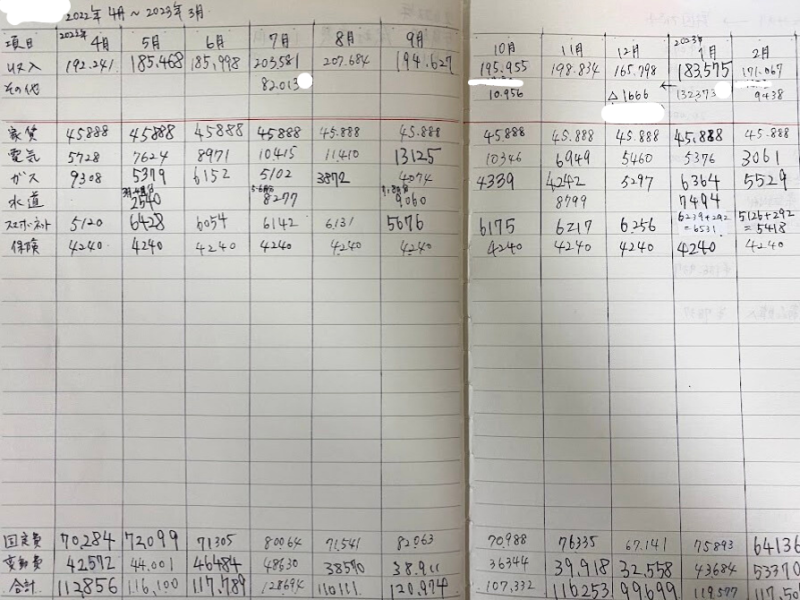 2022年4月～2023年3月
項目 2022年 4月 5月 6月 7月 8月 9月 10月 11月 12月 2023年 1月 2月
収入 192.241 185.468 185,998 203,581 207.684 194.627 195.955 198.834 165.798 183,575 171.067
その他 82.013 10.956 △1666 ← 132.373 9438
家賃 45888 45888 45888 45888 45.888 45.888 45.888 45.888 45.888 45,888 45.888
電気 5728 7624 8971 10415 11,410 13125 10346 6949 5460 5376 3061
ガス 9308 5379 6152 5102 3872 4074 4339 4242 5297 6364 5529
水道 2540 8277 9060 8799 7494
スマホ・ネット 5120 6428 6054 6142 6131 5676 6175 6217 6,256 6239+292=6531 5126+292=5418
保険 4240 4240 4240 4240 4240 4240 4240 4240 4240 4240 4240
固定費 70,284 72,099 71305 80064 71,541 82.063 70,988 76335 67.141 75893 64136
変動費 42,572 44.001 46484 48630 38570 38.911 36344 39,918 32,558 43,684 53370
合計 112,856 116,100 117,789 128694 110111 120,974 107,332 116253 99699 119577